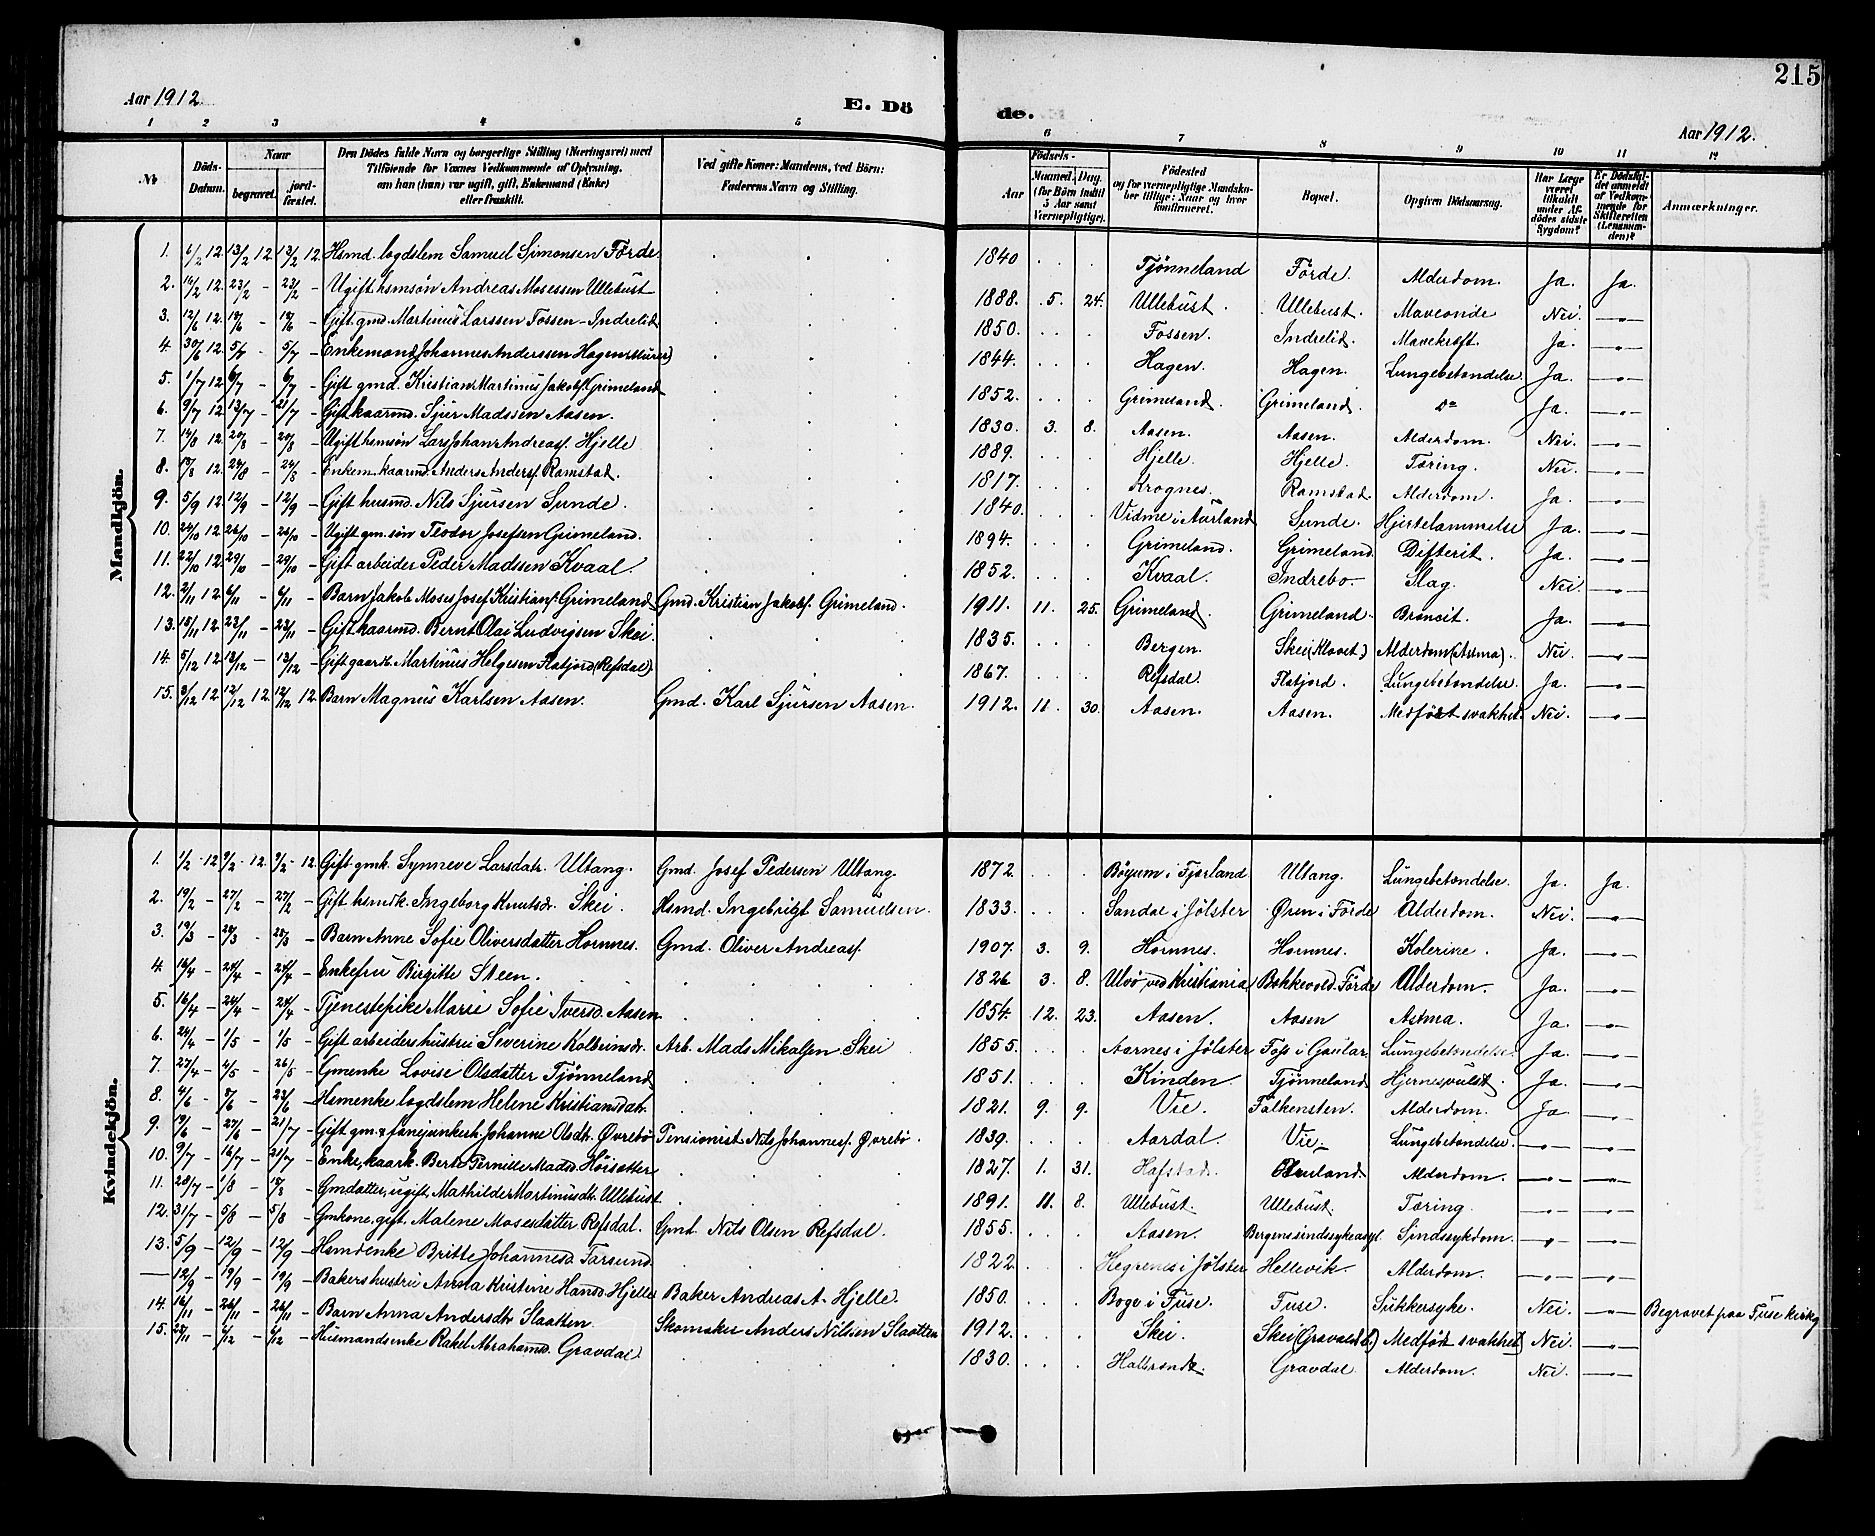 215
Aar 1912. E. Dö de. Aar 1912.
1 2 3 4 5 6 7 8 9 10 11 12
No Döds-Datum. Naar begravet. jordfæstet. Den Dödes fulde Navn og borgerlige Stilling (Næringsvei) med Tilföiende for Voxnes Vedkommende af Oplysning, om han (hun) var ugift, gift, Enkemand (Enke) eller fraskilt. Ved gifte Koner: Mandens, ved Börn: Faderens Navn og Stilling. Aar Födsels- Maaned. Dag. (for Börn indtil 5 Aar samt Værnepligtige). Födested og for værnepligtige Mandskaber tillige: Naar og hvor konfirmeret. Bopæl. Opgiven Dödsaarsag. Har Læge været tilkaldt under Afdödes sidste Sygdom? Er Dödsfaldet anmeldt af Vedkommende for Skifteretten (Lensmanden)? Anmærkninger.
Mandkjön.
1. 6/2 12. 13/2 12 13/2 12. Hsmd. logdslem Samuel Simonsen Förde 1840 Tjönneland Förde. Alderdom. Ja. Ja.
2. 14/2 12. 23/2 - 23/2 - Ugift hsmsön Andreas Mosessen Ullebust 1888. 5. 24. Ullebust. Ullebust. Maveonde Nei. -"-
3. 12/6 12. 19/6 - 19/6 - Gift gmd. Martinus Larssen Fossen-Indrelid 1850. Fossen. Indrelid. Mavekræft. Ja. -"-
4. 30/6 12. 5/7 - 5/7 - Enkemand Johannes Anderssen Hagen (Murer) 1844. Hagen. Hagen. Lungebetændelse. Ja. -"-
5. 1/7 12 6/7 - 6/7 - Gift gmd. Kristian Martinus Jakobs. Grimeland 1852. Grimeland. Grimeland. Do Ja. -"-
6. 9/7 12 13/7 - 21/7 - Gift kaarmd. Sjur Madssen Aasen. 1830. 3. 8. Aasen. Aasen. Alderdom. Nei. -"-
7. 14/8 12. 20/8 - 20/8 - Ugift hsmsön Lars Johan Andreas. Hjelle 1889. Hjelle. Hjelle. Tæring. Nei. -"-
8. 19/8 12. 24/8 - 24/8 - Enkem. kaarmd. Anders Anders. Ramstad. 1817. Krognes. Ramstad Alderdom. Ja. -"-
9. 5/9 12 12/9 - 12/9 - Gift husmd. Nils Sjursen Sunde. 1840. Vidme i Aurland Sunde. Hjertelammelse Ja. -"-
10. 24/10 12 26/10 - 26/10 - Ugift gm.sön Teodor Josefsen Grimeland. 1894. Grimeland. Grimeland. Difterit. Ja. -"-
11. 22/10 12 29/10 - 29/10 - Gift arbeider Peder Madssen Kvaal. 1852. Kvaal. Indrebo. Slag. Nei. -"-
12. 2/11 12. 6/11 - 6/11 - Barn Jakob Moses Josef Kristians. Grimeland Gmd. Kristian Jakobs. Grimeland. 1911. 11. 25. Grimeland. Grimeland. Broncit. Ja. -"-
13. 15/11 12. 23/11 - 23/11 - Gift kaarmd. Bernt Olai Ludvigsen Skei. 1835. Bergen. Skei (Klovet) Alderdom (Astma). Nei. -"-
14. 5/12 12 13/12 - 13/12 - Gift gaardb. Martinus Helgesen Flatjord (Refsdal) 1867. Refsdal Flatjord. Lungebetændelse. Ja. -"-
15. 3/12 12. 12/12 12 12/12 12. Barn Magnus Karlsen Aasen. Gmd. Karl Sjursen Aasen. 1912. 11. 30. Aasen. Aasen. Medfödt svakhet. Nei. -"-
Kvindekjön.
1. 1/2 - 12 9/2 - 12. 9/2 - 12. Gift gmk. Synneve Larsdatr. Ultang. Gmd. Josef Pedersen Ultang. 1872. Böyum i Fjærland Ultang. Lungebetændelse. Ja. Ja.
2. 19/2 - 27/2 - 27/2 - Gift hsmdk. Ingeborg Knutsdr. Skei. Hsmd. Ingebrigt Samuelsen. 1833. Sandal i Jölster Øren i Förde Alderdom. Nei. -"-
3. 19/3 - 28/3 - 28/3 - Barn Anne Sofie Oliversdatter Hornnes. Gmd. Oliver Andreas. 1907. 3. 9. Hornnes. Hornnes. Kolerine. Ja. -"-
4. 16/4 - 24/4 - 24/4 - Enkefru Birgitte Steen. 1826 3. 8. Ulvö ved Kristiania Bakkevold. Förde Alderdom. Ja. -"-
5. 16/4 - 24/4 - 24/4 - Tjenestepike Marie Sofie Iversd. Aasen 1854. 12. 23. Aasen. Aasen Astma. Ja. -"-
6. 24/4 - 1/5 - 1/5 - Gift arbeiders hustru Severine Kolbeinsdr. Arb. Mads Mikalsen Skei 1855. Aarnes i Jölster Foss i Gaular Lungebetændelse. Ja. -"-
7. 27/4 - 4/5 - 26/5 - Gmenke Lovise Olsdatter Tjönneland 1851. Kinden. Tjönneland Hjernesvulst. Ja. -"-
8. 4/6 - 8/6 - 23/6 - Hsmenke logdslem Helene Kristiansdatr. 1821. 9. 9. Vie. Falkensten. Alderdom. Ja -"-
9. 19/6 - 27/6 - 21/7 - Gift gm. & fanejunkerh. Johanne Olsdtr. Øvrebö Pensionist Nils Johannes. Øvrebö. 1839. Aardal. Vie. Lungebetændelse. -"- -"-
10. 9/7 - 16/7 - 21/7 - Enke, kaark. Berte Pernille Madsd. Höisæter. 1827. 1. 31. Hafstad. Alderdom. -"- -"-
11. 28/7 - 1/8 - 18/8 - Gmdatter, ugift, Mathilde Martinusdtr. Ullebust 1891. 11. 8. Ullebust. Ullebust. Tæring. -"- -"-
12. 31/7 - 5/8 - 5/8 - Gmkone, gift. Malene Mosesdatter Refsdal. Gmd. Nils Olsen Refsdal. 1855. Aasen. Bergens sindssykeasyl. Sindssykdom. -"- -"-
13. 5/9 - 12/9 - 12/9 - Hsmdenke Britte Johannesd. Farsund 1822 Hegrenes i Jölster Hellevik. Alderdom. -"- -"-
— 12/9 - 19/9 - 19/9 - Bakers hustru Anna Kristine Hansd. Hjelle Baker Andreas A. Hjelle. 1850. Boge i Fuse. Fuse. Sukkersyke. Nei. -"- Begravet paa Fuse kirkg.
14. 16/11 - 26/11 - 26/11 - Barn Anna Andersdtr. Slaatten. Skomaker Anders Nilsen Slaatten 1912. Skei. Skei (Gravdalsb.) Medfödt svakhet) Nei. -"-
15. 28/11 - 6/12 - 6/12 - Husmandsenke Rakel Abrahamsd. Gravdal 1830. Halbrendt. Gravdal. Alderdom. Nei. -"-